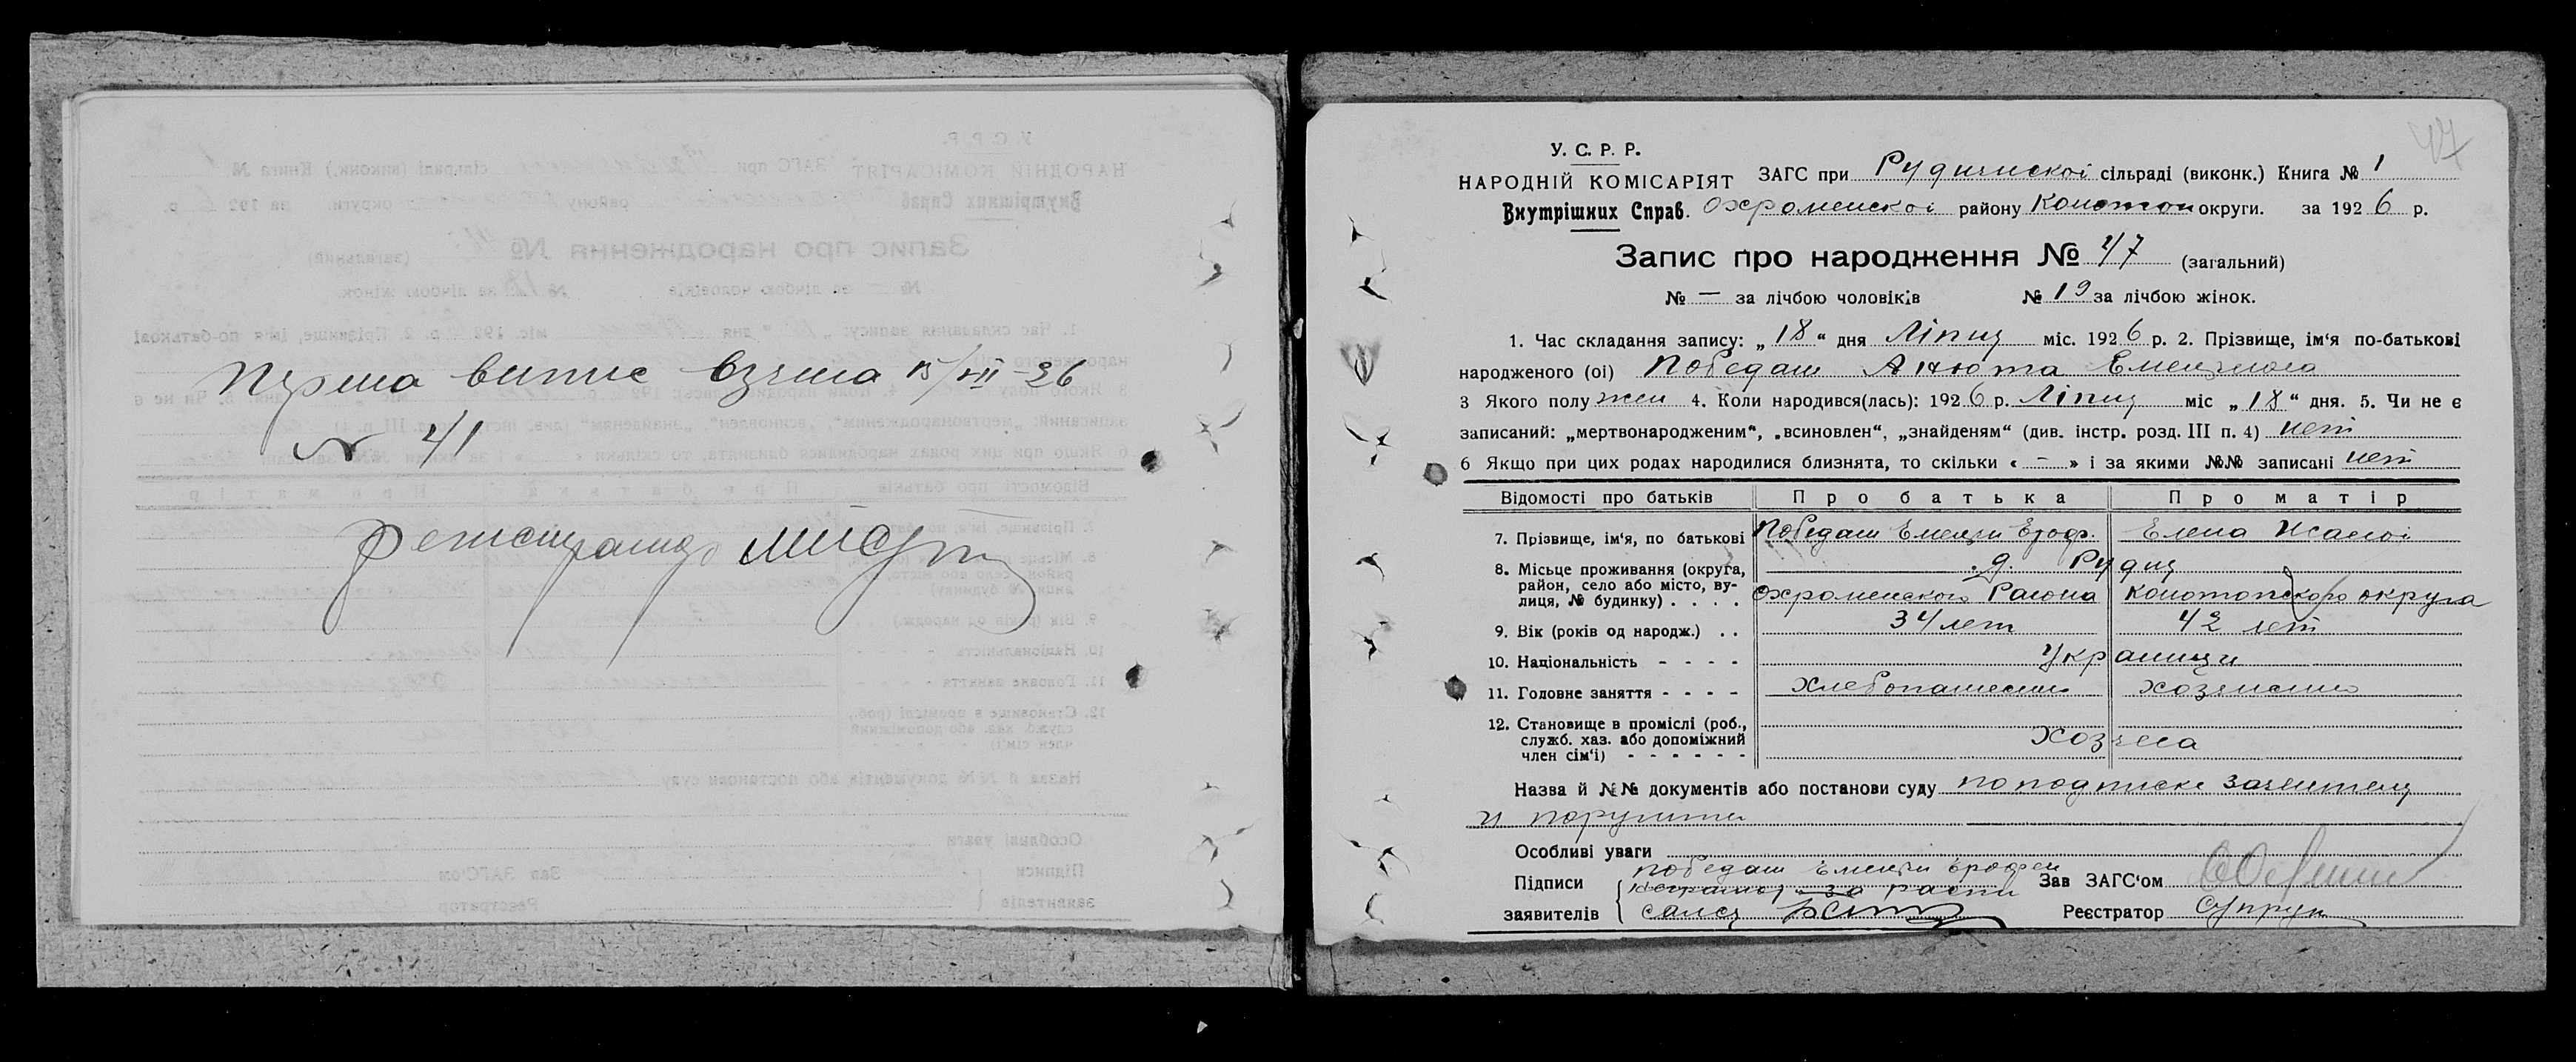 Перша випис взята 15/VII-26
№ 41
47
У. С. Р. Р.
НАРОДНІЙ КОМІСАРІЯТ
Внутрішних Справ.
ЗАГС при сільраді (виконк.) Книга № 1
району Конотоп округи. за 1926 р.
Запис про народження № 47 (загальний)
№ — за лічбою чоловіків № 19 за лічбою жінок.
1. Час складання запису: „18“ дня Ліпця міс. 1926 р. 2. Прізвище, ім‘я по-батькові
народженого (ої) Победаш Анюта
3 Якого полу жен 4. Коли народився(лась): 1926 р. Ліпця міс „18“ дня. 5. Чи не є
записаний: „мертвонародженим“, „всиновлен“, „знайденям“ (див. інстр. розд. III п. 4) нет
6 Якщо при цих родах народилися близнята, то скільки « — » і за якими №№ записані нет
Відомості про батьків Про батька Про матір
7. Прізвище, ім‘я, по батькові Победаш Емельян Ероф. Елена
8. Місьце проживання (округа,
район, село або місто, ву-
лиця, № будинку) . . . . Района Конотопского округа
9. Вік (років од народж.) . . 34 лет 42 лет
10. Національність - - - - украинцы
11. Головне заняття - - - - Хлебопашество
12. Становище в проміслі (роб.,
служб. хаз. або допоміжний
член сім‘ї) - - - - - - Хозяева
Назва й №№ документів або постанови суду по подписке
и
Особливі уваги
Підписи Победаш Емельян Ерофеи
заявителів
Зав ЗАГС‘ом
Реєстратор Супрун